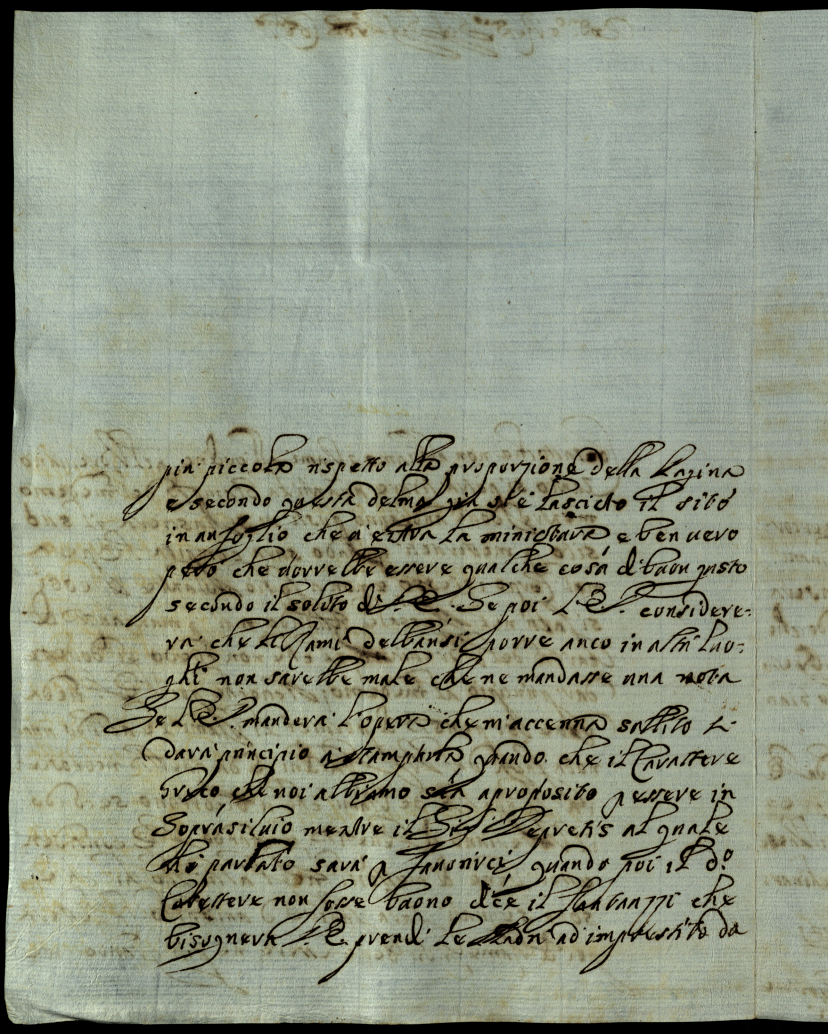 più piccola rispetto alla proporzione della Pagina
e secondo questa delmo già s'è lasciato il sito
in un foglio che ci entra la ministura e ben vero
però che dovrebbe essere qualche cosa di buon gusto
secondo il solito di V.S. Se poi V.S. considere-
rà che li Rami delbansi porre anco in altri luo-
ghi non sarebbe male che ne mandasse una nota
Se V.S. manderà l'opera che m'accenna subbito si
darà principio a stamparla quando che il Carattere
Greco che noi abbiamo sia aproposito p essere in
Soprasilvio mentre il Sig. Depretis al quale
hò parlato sarà p quando poi il do
Carattere non fosse buono dice il che
bisognerà V.S. prendi le Madri ad imprestito da